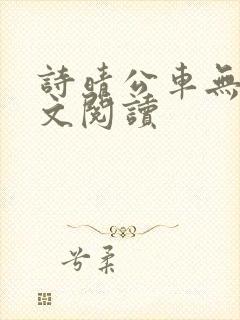 詩晴公車無
文閱讀
兮柔